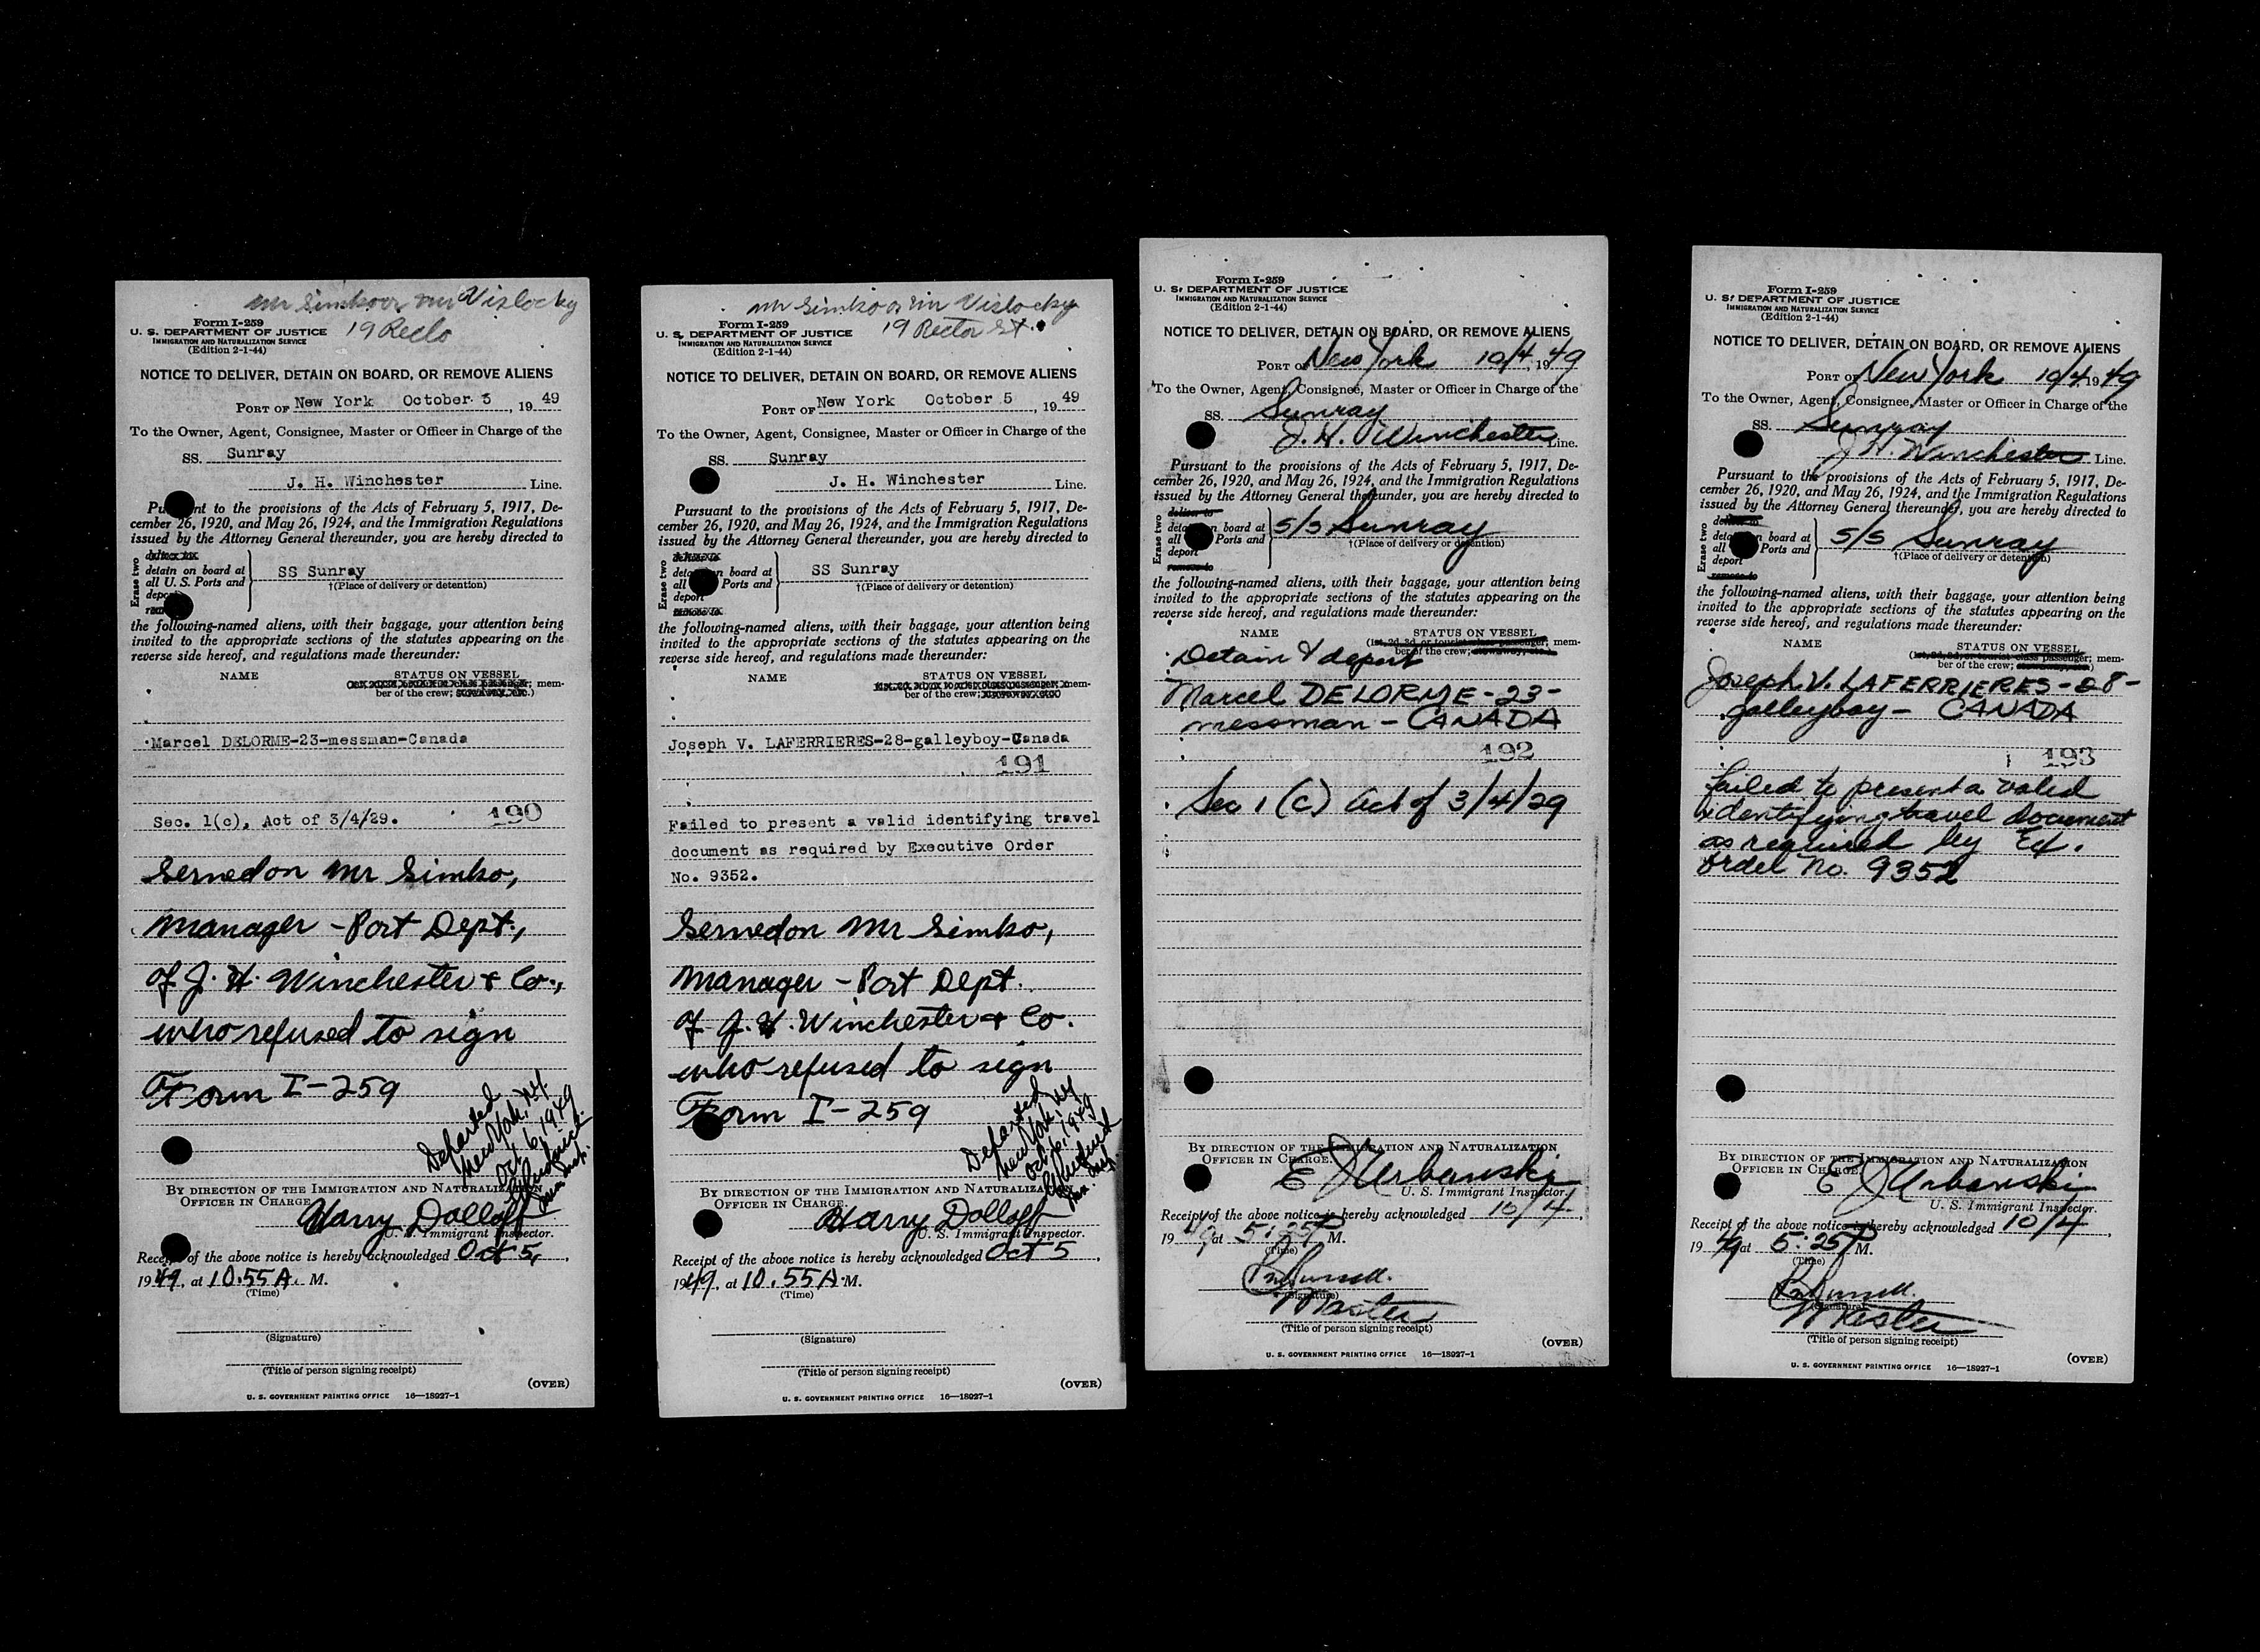 Mr Simko or Mr Vislocky
19 Recto
Form I-259
U. S. DEPARTMENT OF JUSTICE
IMMIGRATION AND NATURALIZATION SERVICE
(Edition 2-1-44)
NOTICE TO DELIVER, DETAIN ON BOARD, OR REMOVE ALIENS
PORT OF New York October 3, 19 49
To the Owner, Agent, Consignee, Master or Officer in Charge of the
SS. Sunray
J. H. Winchester Line.
Pursuant to the provisions of the Acts of February 5, 1917, De-
cember 26, 1920, and May 26, 1924, and the Immigration Regulations
issued by the Attorney General thereunder, you are hereby directed to
Erase two
detain on board at
all U.S. Ports and
deport
SS Sunray
†(Place of delivery or detention)
the following-named aliens, with their baggage, your attention being
invited to the appropriate sections of the statutes appearing on the
reverse side hereof, and regulations made thereunder:
NAME STATUS ON VESSEL
mem-
ber of the crew;
Marcel DELORME-23-messman-Canada
Sec. 1(c), Act of 3/4/29. 190
Served on Mr Simko,
Manager - Port Dept.,
of J. H. Winchester & Co.,
who refused to sign
Form I-259
Departed
New York, N.Y.
Oct 6, 1949
BY DIRECTION OF THE IMMIGRATION AND NATURALIZATION
OFFICER IN CHARGE.
Harry Dolloff
U. S. Immigrant Inspector.
Receipt of the above notice is hereby acknowledged Oct 5,
1949, at 10.55 A. M.
(Time)
(Signature)
(Title of person signing receipt)
(OVER)
U. S. GOVERNMENT PRINTING OFFICE 16—18927-1
Mr Simko or Mr Vislocky
19 Rector St.
Form I-259
U. S. DEPARTMENT OF JUSTICE
IMMIGRATION AND NATURALIZATION SERVICE
(Edition 2-1-44)
NOTICE TO DELIVER, DETAIN ON BOARD, OR REMOVE ALIENS
PORT OF New York October 5, 19 49
To the Owner, Agent, Consignee, Master or Officer in Charge of the
SS. Sunray
J. H. Winchester Line.
Pursuant to the provisions of the Acts of February 5, 1917, De-
cember 26, 1920, and May 26, 1924, and the Immigration Regulations
issued by the Attorney General thereunder, you are hereby directed to
Erase two
detain on board at
all Ports and
deport
SS Sunray
†(Place of delivery or detention)
the following-named aliens, with their baggage, your attention being
invited to the appropriate sections of the statutes appearing on the
reverse side hereof, and regulations made thereunder:
NAME STATUS ON VESSEL
mem-
ber of the crew;
Joseph V. LAFERRIERES-28-galleyboy-Canada
191
Failed to present a valid identifying travel
document as required by Executive Order
No. 9352.
Served on Mr Simko,
Manager - Port Dept.
of J. H. Winchester & Co.
who refused to sign
Form I-259
Departed
New York, N.Y.
Oct 6, 1949
BY DIRECTION OF THE IMMIGRATION AND NATURALIZATION
OFFICER IN CHARGE.
Harry Dolloff
U. S. Immigrant Inspector.
Receipt of the above notice is hereby acknowledged Oct 5,
1949, at 10.55 A. M.
(Time)
(Signature)
(Title of person signing receipt)
(OVER)
U. S. GOVERNMENT PRINTING OFFICE 16—18927-1
Form I-259
U. S. DEPARTMENT OF JUSTICE
IMMIGRATION AND NATURALIZATION SERVICE
(Edition 2-1-44)
NOTICE TO DELIVER, DETAIN ON BOARD, OR REMOVE ALIENS
PORT OF New York 10/4, 1949
To the Owner, Agent, Consignee, Master or Officer in Charge of the
SS. Sunray
J. H. Winchester Line.
Pursuant to the provisions of the Acts of February 5, 1917, De-
cember 26, 1920, and May 26, 1924, and the Immigration Regulations
issued by the Attorney General thereunder, you are hereby directed to
Erase two
deliver to
detain on board at
all Ports and
deport
remove to
S/S Sunray
†(Place of delivery or detention)
the following-named aliens, with their baggage, your attention being
invited to the appropriate sections of the statutes appearing on the
reverse side hereof, and regulations made thereunder:
NAME STATUS ON VESSEL
(1st, 2d, 3d, or tourist class passenger; mem-
ber of the crew; stowaway, etc.)
Detain & deport
Marcel DELORME-23-
messman - CANADA
192
Sec 1 (C) Act of 3/4/29
BY DIRECTION OF THE IMMIGRATION AND NATURALIZATION
OFFICER IN CHARGE.
E J Urbanski
U. S. Immigrant Inspector.
Receipt of the above notice is hereby acknowledged 10/4,
1949 at 5:25 P M.
(Time)
(Signature)
Master
(Title of person signing receipt)
(OVER)
U. S. GOVERNMENT PRINTING OFFICE 16—18927-1
Form I-259
U. S. DEPARTMENT OF JUSTICE
IMMIGRATION AND NATURALIZATION SERVICE
(Edition 2-1-44)
NOTICE TO DELIVER, DETAIN ON BOARD, OR REMOVE ALIENS
PORT OF New York 10/4 1949
To the Owner, Agent, Consignee, Master or Officer in Charge of the
SS. Sunray
J H. Winchester Line.
Pursuant to the provisions of the Acts of February 5, 1917, De-
cember 26, 1920, and May 26, 1924, and the Immigration Regulations
issued by the Attorney General thereunder, you are hereby directed to
Erase two
deliver to
detain on board at
all Ports and
deport
remove to
S/S Sunray
†(Place of delivery or detention)
the following-named aliens, with their baggage, your attention being
invited to the appropriate sections of the statutes appearing on the
reverse side hereof, and regulations made thereunder:
NAME STATUS ON VESSEL
(1st, 2d, 3d, or tourist class passenger; mem-
ber of the crew; stowaway, etc.)
Joseph V. LAFERRIERES-28-
galleyboy - CANADA
193
Failed to present a valid
identifying travel document
as required by Ex.
Order No. 9352
BY DIRECTION OF THE IMMIGRATION AND NATURALIZATION
OFFICER IN CHARGE.
E J Urbanski
U. S. Immigrant Inspector.
Receipt of the above notice is hereby acknowledged 10/4,
1949 at 5:25 P M.
(Time)
(Signature)
Master
(Title of person signing receipt)
(OVER)
U. S. GOVERNMENT PRINTING OFFICE 16—18927-1